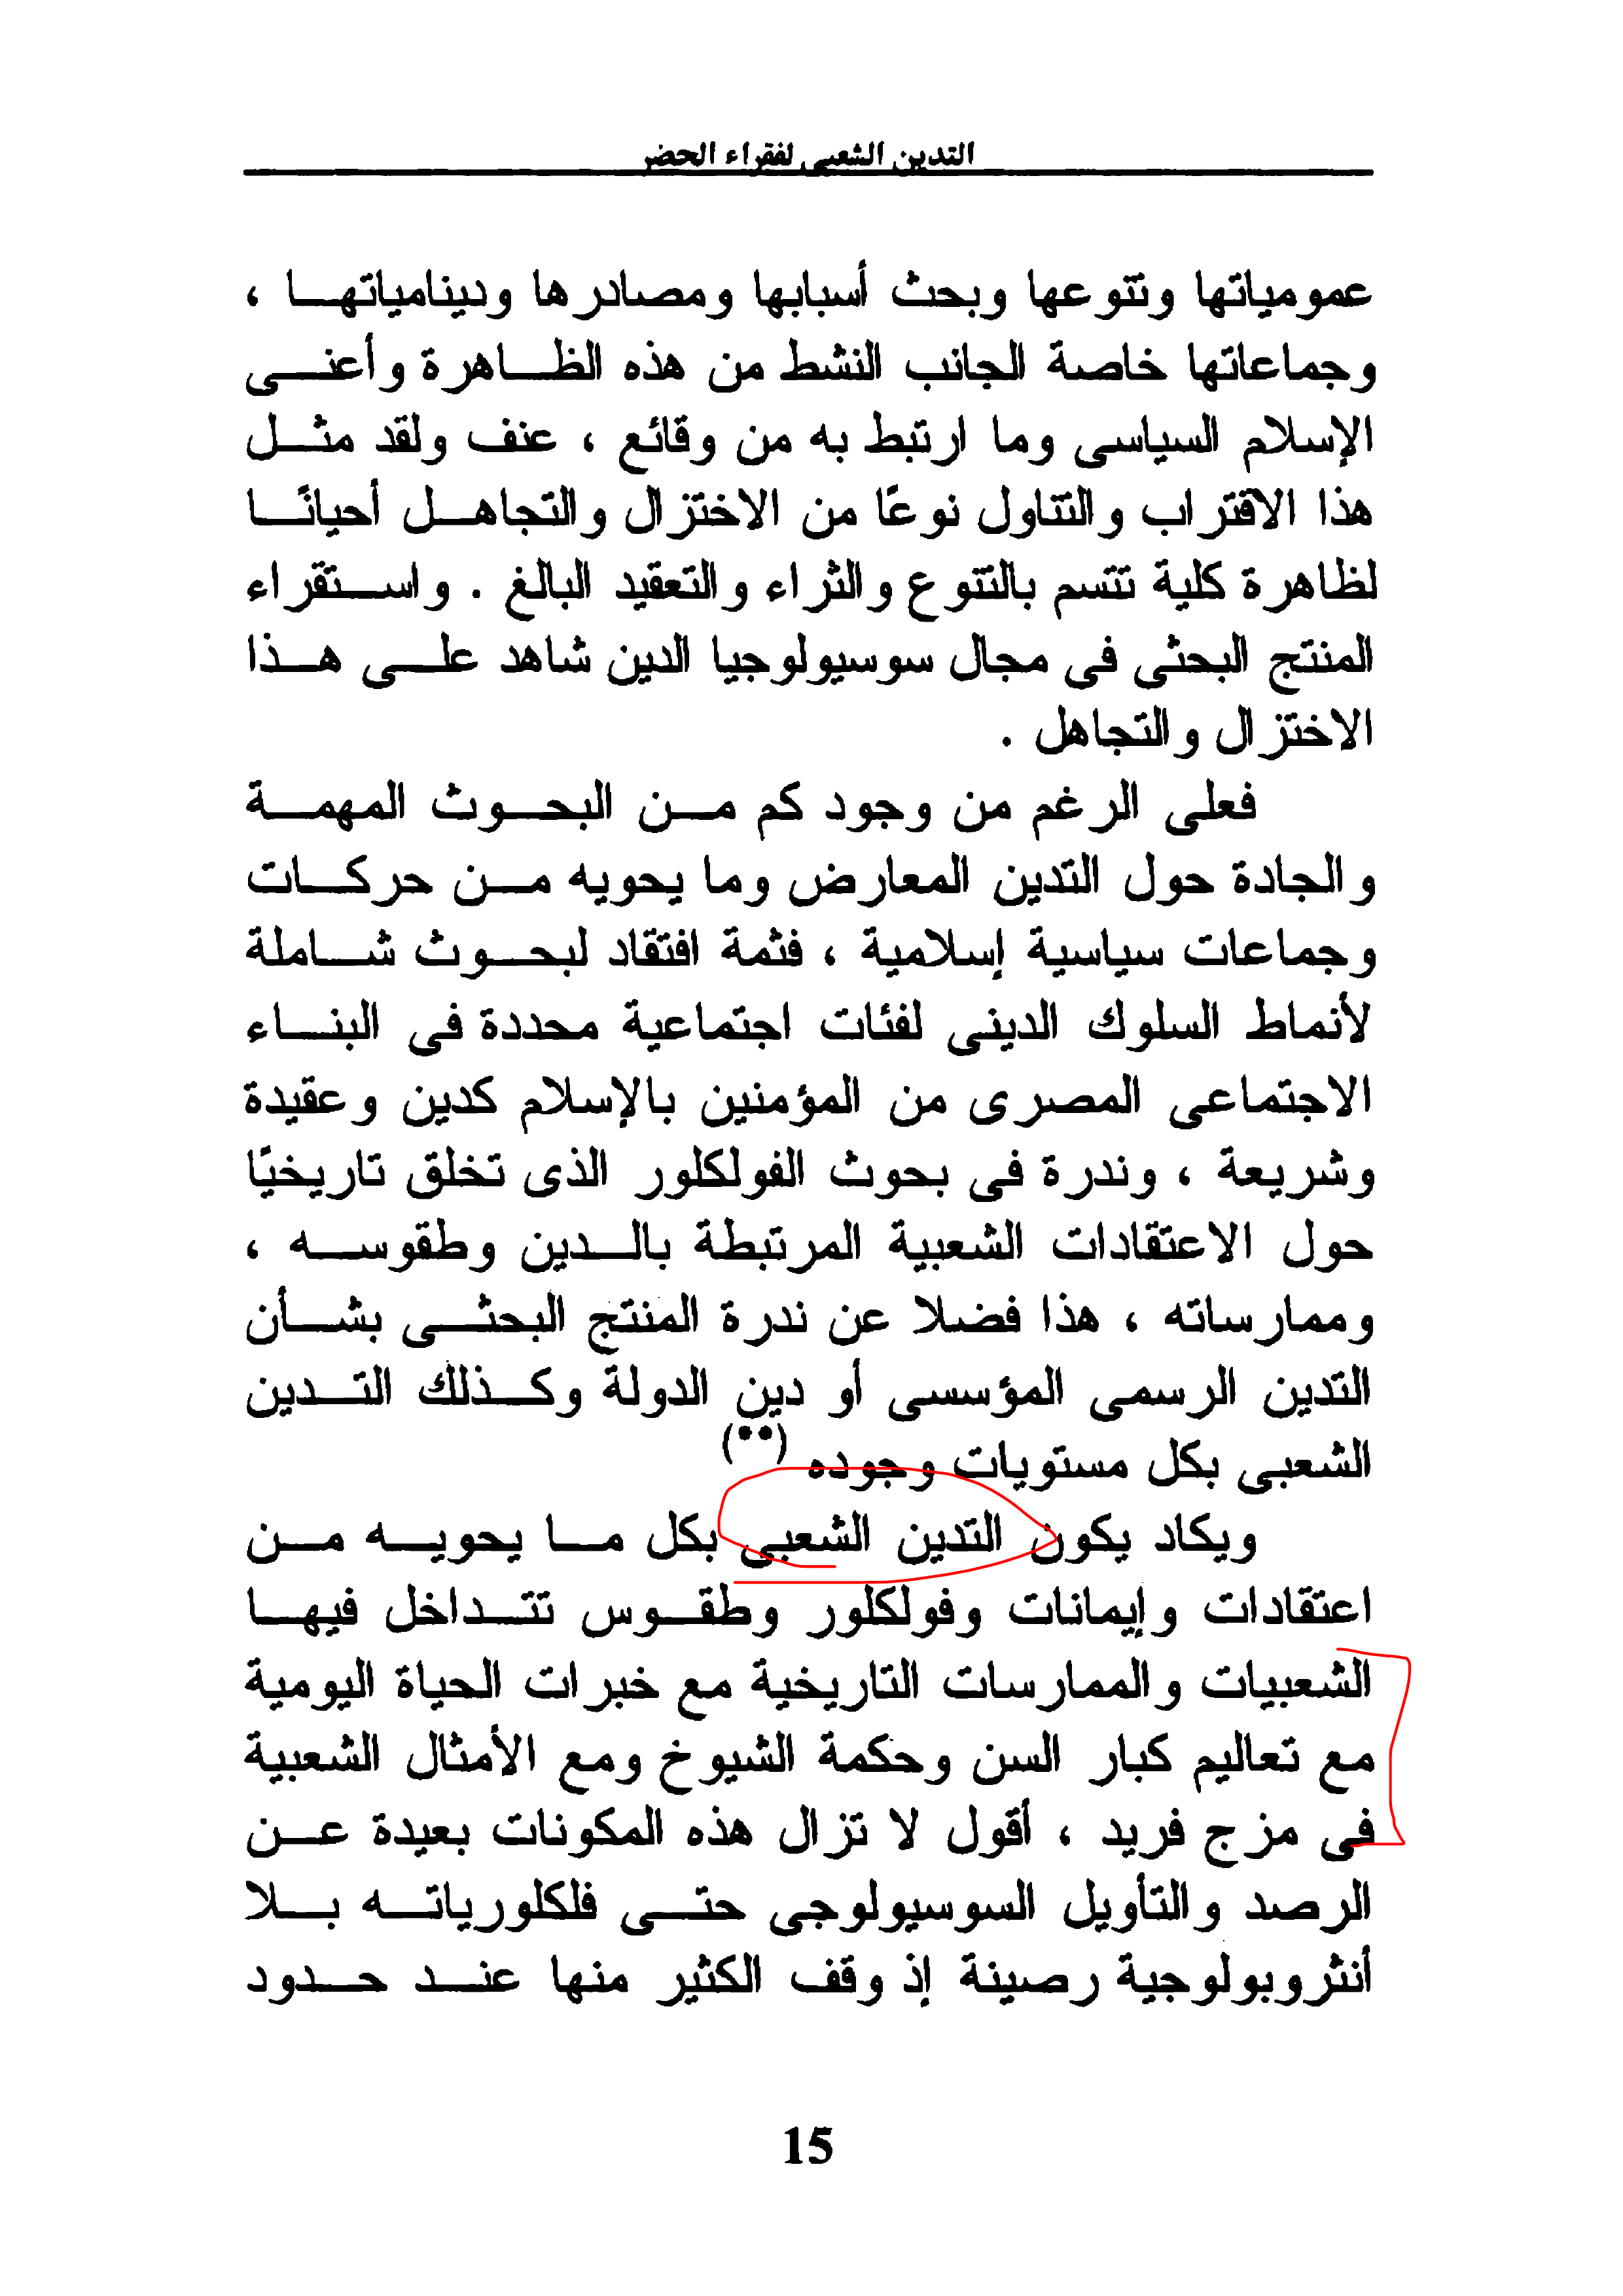 التدين الشعبى لفقراء الحضر
عمومياتها وتنوعها وبحث أسبابها ومصادرها ودينامياتهـــا ،
وجماعاتها خاصة الجانب النشط من هذه الظـــاهرة وأعنـــى
الإسلام السياسى وما ارتبط به من وقائع ، عنف ولقد مثـــل
هذا الاقتراب والتناول نوعًا من الاختزال والتجاهـــل أحيانًـــا
لظاهرة كلية تتسم بالتنوع والثراء والتعقيد البالغ . واســـتقراء
المنتج البحثى فى مجال سوسيولوجيا الدين شاهد علـــى هـــذا
الاختزال والتجاهل .
فعلى الرغم من وجود كم مـــن البحـــوث المهمـــة
والجادة حول التدين المعارض وما يحويه مـــن حركـــات
وجماعات سياسية إسلامية ، فثمة افتقاد لبحـــوث شـــاملة
لأنماط السلوك الدينى لفئات اجتماعية محددة فى البنـــاء
الاجتماعى المصرى من المؤمنين بالإسلام كدين وعقيدة
وشريعة ، وندرة فى بحوث الفولكلور الذى تخلق تاريخيًا
حول الاعتقادات الشعبية المرتبطة بالـــدين وطقوســـه ،
وممارساته ، هذا فضلا عن ندرة المنتج البحثـــى بشـــأن
التدين الرسمى المؤسسى أو دين الدولة وكـــذلك التـــدين
الشعبى بكل مستويات وجوده (**)
ويكاد يكون التدين الشعبى بكل مـــا يحويـــه مـــن
اعتقادات وإيمانات وفولكلور وطقـــوس تتـــداخل فيهـــا
الشعبيات والممارسات التاريخية مع خبرات الحياة اليومية
مع تعاليم كبار السن وحكمة الشيوخ ومع الأمثال الشعبية
فى مزج فريد ، أقول لا تزال هذه المكونات بعيدة عـــن
الرصد والتأويل السوسيولوجى حتـــى فلكلورياتـــه بـــلا
أنثروبولوجية رصينة إذ وقف الكثير منها عنـــد حـــدود
15